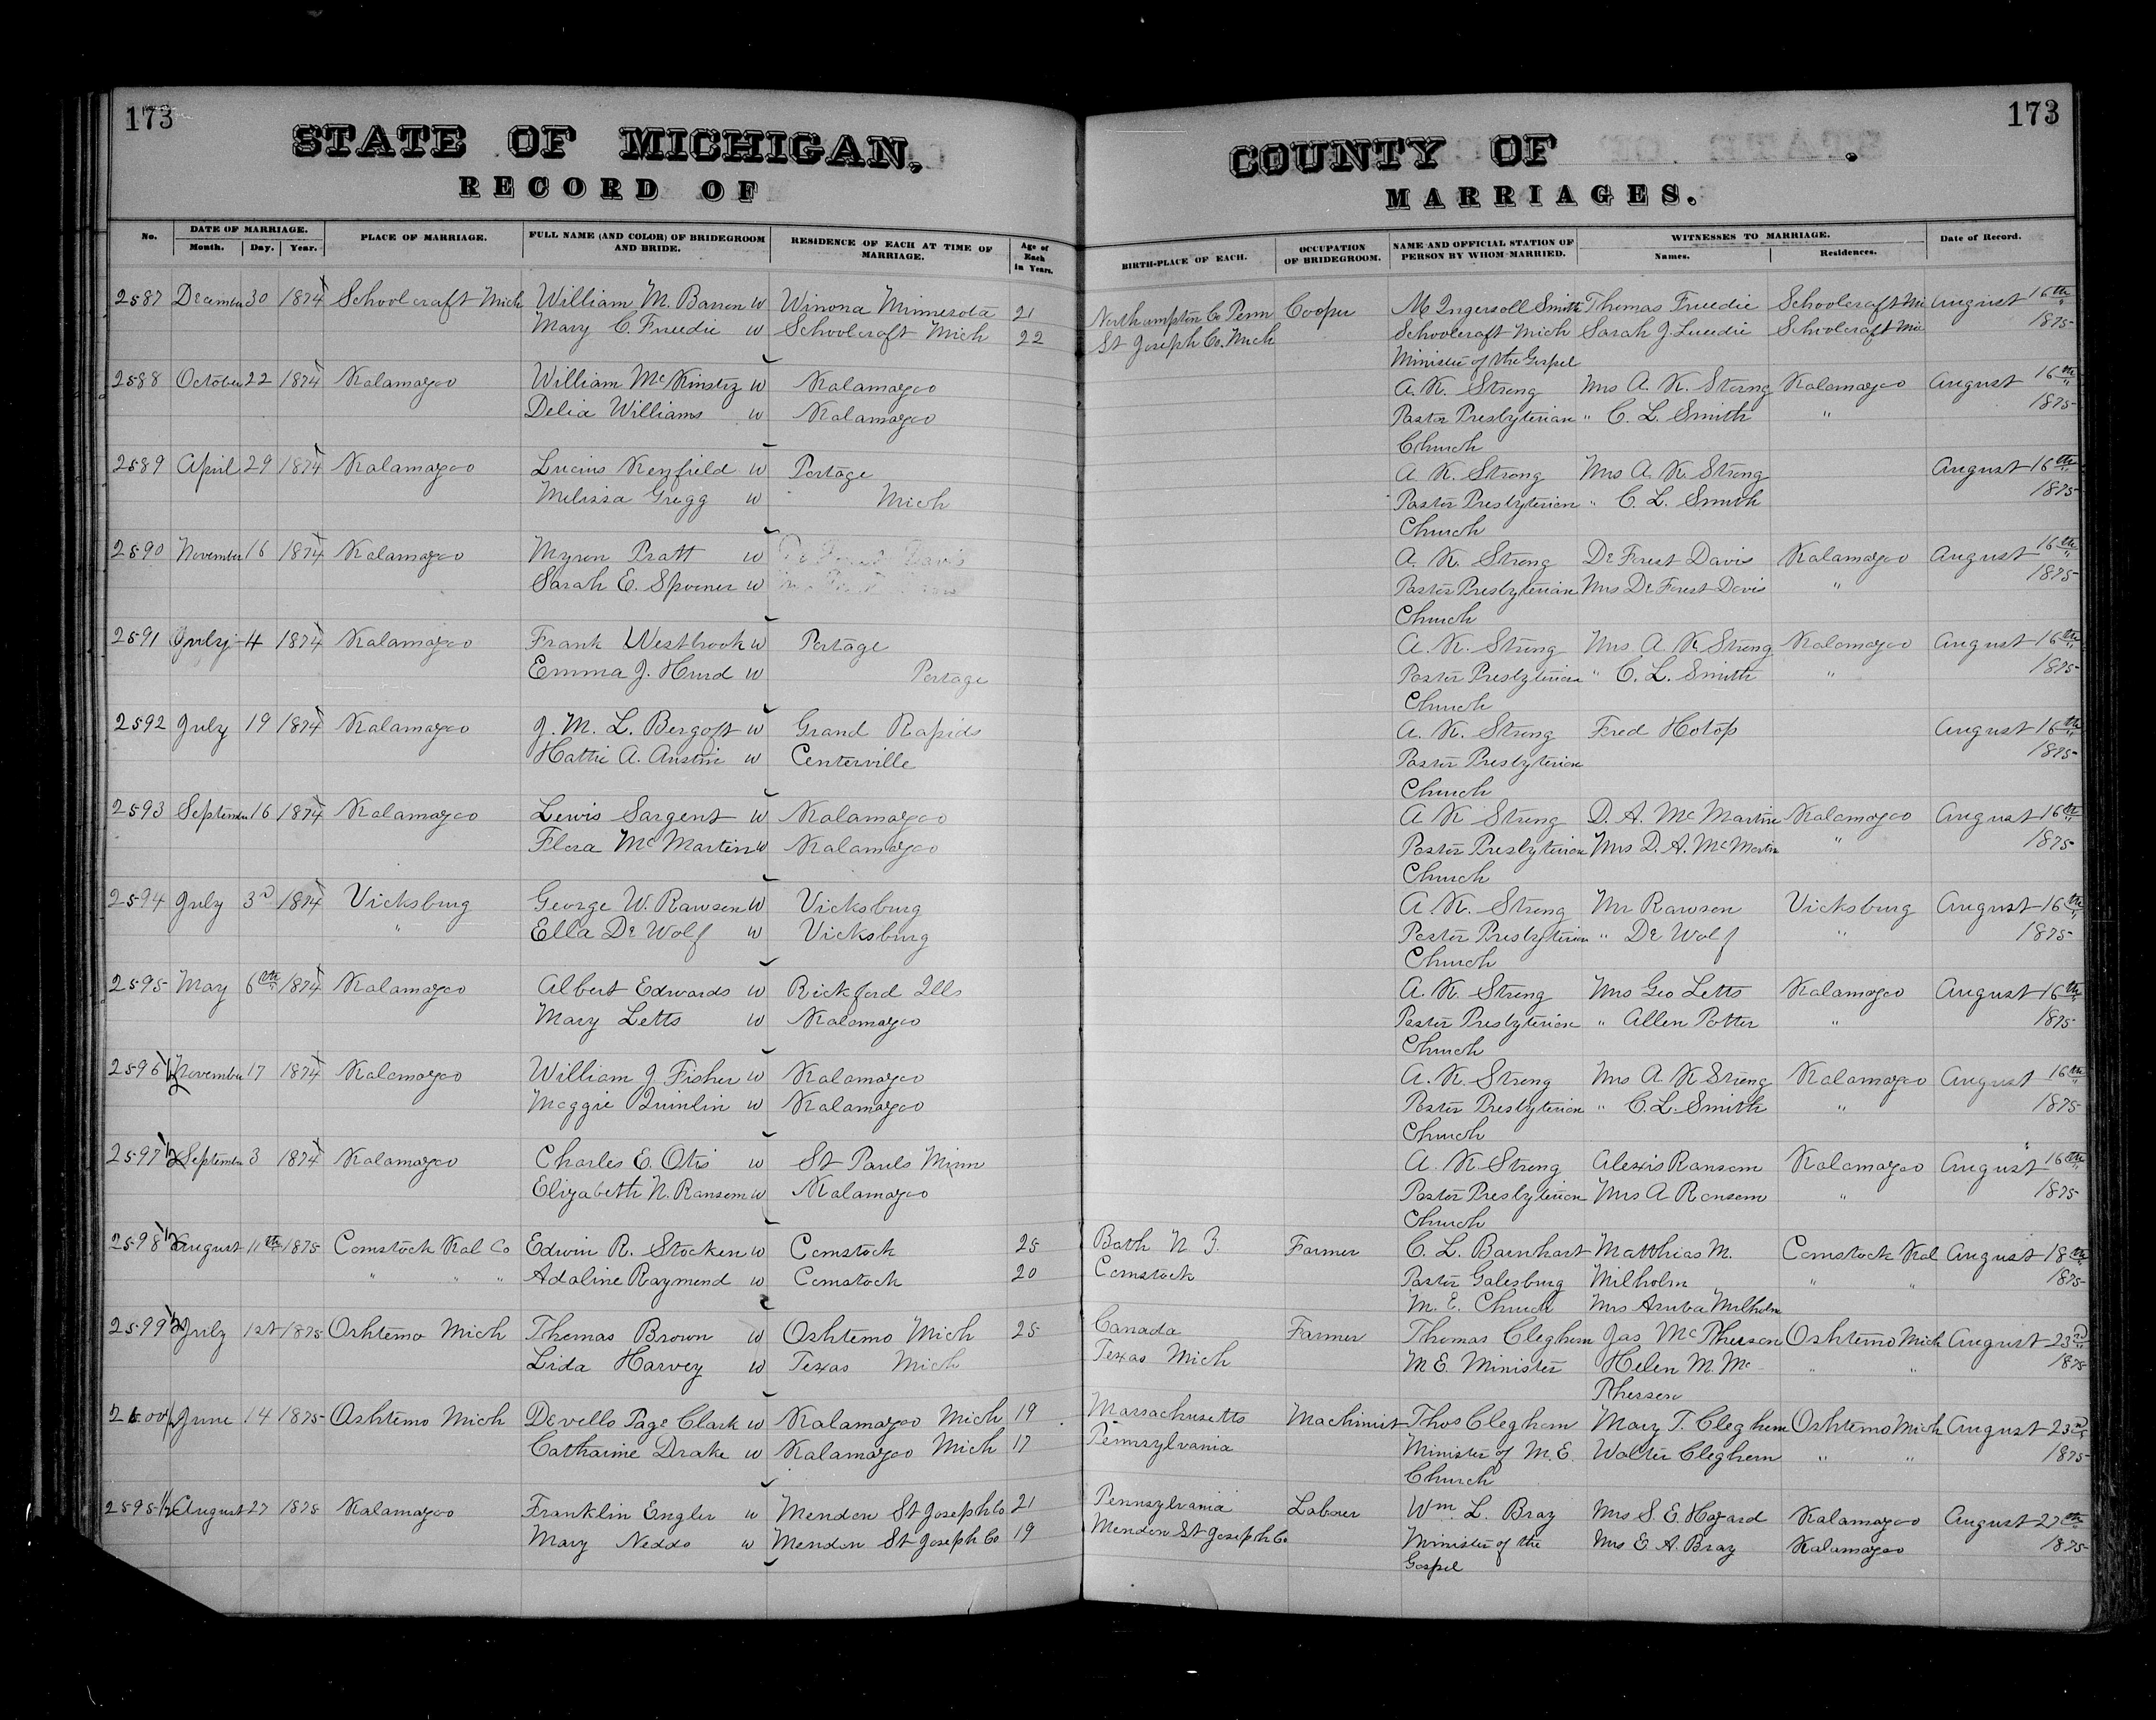 173
STATE OF MICHIGAN.
RECORD OF
173
COUNTY OF .
MARRIAGES.
No. DATE OF MARRIAGE. Month. Day. Year. PLACE OF MARRIAGE. FULL NAME (AND COLOR) OF BRIDEGROOM AND BRIDE. RESIDENCE OF EACH AT TIME OF MARRIAGE. Age of Each in Years. BIRTH-PLACE OF EACH. OCCUPATION OF BRIDEGROOM. NAME AND OFFICIAL STATION OF PERSON BY WHOM MARRIED. WITNESSES TO MARRIAGE. Names. Residences. Date of Record.
2587 December 30 1874 Schoolcraft Mich William M. Barron w Winona Minnesota 21 Northampton Co Penn Cooper M Ingersoll Smith Thomas Schoolcraft Mi August 16th
Mary C. w Schoolcraft Mich 22 St Joseph Co. Mich Schoolcraft Mich Sarah J. Schoolcraft Mic 1875
Minister of the Gospel
2588 October 22 1874 Kalamazoo William McKinstry w Kalamazoo A. K. Strong Mrs A. K. Strong Kalamazoo August 16th
Delia Williams w Kalamazoo Pastor Presbyterian " C. L. Smith " 1875
Church
2589 April 29 1874 Kalamazoo Lucius Keyfield w Portage A. K. Strong Mrs A. K. Strong August 16th
Melissa Gregg w Mich Pastor Presbyterian " C. L. Smith 1875
Church
2590 November 16 1874 Kalamazoo Myron Pratt w A. K. Strong De Forest Davis Kalamazoo August 16th
Sarah E. Spooner w Pastor Presbyterian Mrs De Forest Davis " 1875
Church
2591 July 4 1874 Kalamazoo Frank Westbrook w Portage A. K. Strong Mrs. A. K Strong Kalamazoo August 16th
Emma J. Hurd w Portage Pastor Presbyterian " C. L. Smith " 1875
Church
2592 July 19 1874 Kalamazoo J. M. L. w Grand Rapids A. K. Strong Fred Hotop August 16th
Hattie A. Austin w Centerville Pastor Presbyterian 1875
Church
2593 September 16 1874 Kalamazoo Lewis Sargent w Kalamazoo A K Strong D. A. McMartin Kalamazoo August 16th
Flora McMartin w Kalamazoo Pastor Presbyterian Mrs D. A. McMartin " 1875
Church
2594 July 3d 1874 Vicksburg George W. Rawson w Vicksburg A. K. Strong Mr Rawson Vicksburg August 16th
" Ella De Wolf w Vicksburg Pastor Presbyterian " De Wolf " 1875
Church
2595 May 6th 1874 Kalamazoo Albert Edwards w Rickford Ills A. K. Strong Mrs Geo Letts Kalamazoo August 16th
Mary Letts w Kalamazoo Pastor Presbyterian " Allen Potter " 1875
Church
2596 1/2 November 17 1874 Kalamazoo William J Fisher w Kalamazoo A. K. Strong Mrs A K Strong Kalamazoo August 16th
Maggie Quinlin w Kalamazoo Pastor Presbyterian " C. L. Smith " 1875
Church
2597 1/2 September 3 1874 Kalamazoo Charles E. Otis w St Pauls Minn A. K Strong Alexis Ransom Kalamazoo August 16th
Elizabeth N. Ransom w Kalamazoo Pastor Presbyterian Mrs A Ransom " 1875
Church
2598 1/2 August 11th 1875 Comstock Kal Co Edwin R. Stocken w Comstock 25 Bath N. Y. Farmer C. L. Barnhart Matthias M. Comstock Kal August 18th
" " " Adaline Raymond w Comstock 20 Comstock Pastor Galesburg Milholm " " 1875
M. E. Church Mrs Milholm
2599 1/2 July 1st 1875 Oshtemo Mich Thomas Brown w Oshtemo Mich 25 Canada Farmer Thomas Cleghorn Jas McPherson Oshtemo Mich August 23d
Lida Harvey w Texas Mich Texas Mich M E. Minister Helen M. Mc " " 1875
Pherson
2600 1/2 June 14 1875 Oshtemo Mich Devello Page Clark w Kalamazoo Mich 19 Massachusetts Machinist Thos Cleghorn Mary T. Cleghorn Oshtemo Mich August 23d
Catharine Drake w Kalamazoo Mich 17 Pennsylvania Minister of M. E. Walter Cleghorn " " 1875
Church
2595 1/2 August 27 1875 Kalamazoo Franklin Engler w Mendon St Joseph Co 21 Pennsylvania Labour Wm. L. Bray Mrs S. E. Hazard Kalamazoo August 27th
Mary Neddo w Mendon St Joseph Co 19 Mendon St Joseph Co Minister of the Mrs E A. Bray Kalamazoo 1875
Gospel